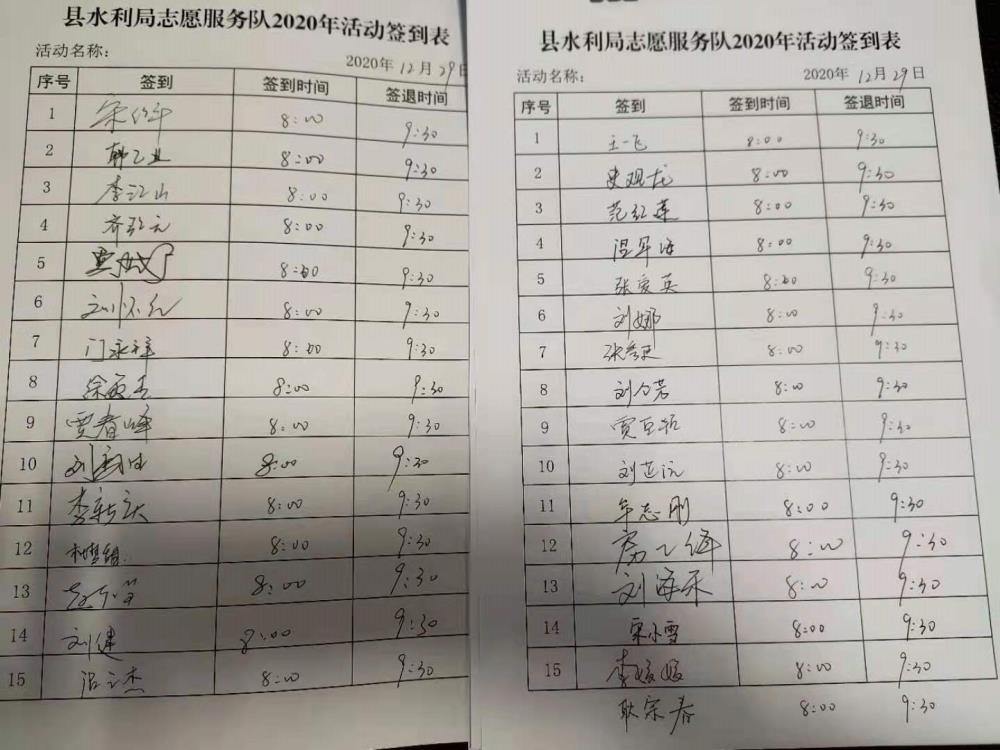 县水利局志愿服务队2020年活动签到表
活动名称：
2020年12月29日
序号 签到 签到时间 签退时间
1 8:00 9:30
2 8:00 9:30
3 李江山 8:00 9:30
4 8:00 9:30
5 8:00 9:30
6 8:00 9:30
7 门永祥 8:00 9:30
8 8:00 9:30
9 贾春峰 8:00 9:30
10 8:00 9:30
11 李新庆 8:00 9:30
12 8:00 9:30
13 8:00 9:30
14 刘健 8:00 9:30
15 8:00 9:30
县水利局志愿服务队2020年活动签到表
活动名称：
2020年12月29日
序号 签到 签到时间 签退时间
1 王一飞 8:00 9:30
2 史观龙 8:00 9:30
3 范红莲 8:00 9:30
4 温军海 8:00 9:30
5 张爱英 8:00 9:30
6 刘娜 8:00 9:30
7 8:00 9:30
8 8:00 9:30
9 8:00 9:30
10 刘芷沅 8:00 9:30
11 牟志刚 8:00 9:30
12 8:00 9:30
13 刘海禾 8:00 9:30
14 宋小雪 8:00 9:30
15 李媛媛 8:00 9:30
耿宗春 8:00 9:30